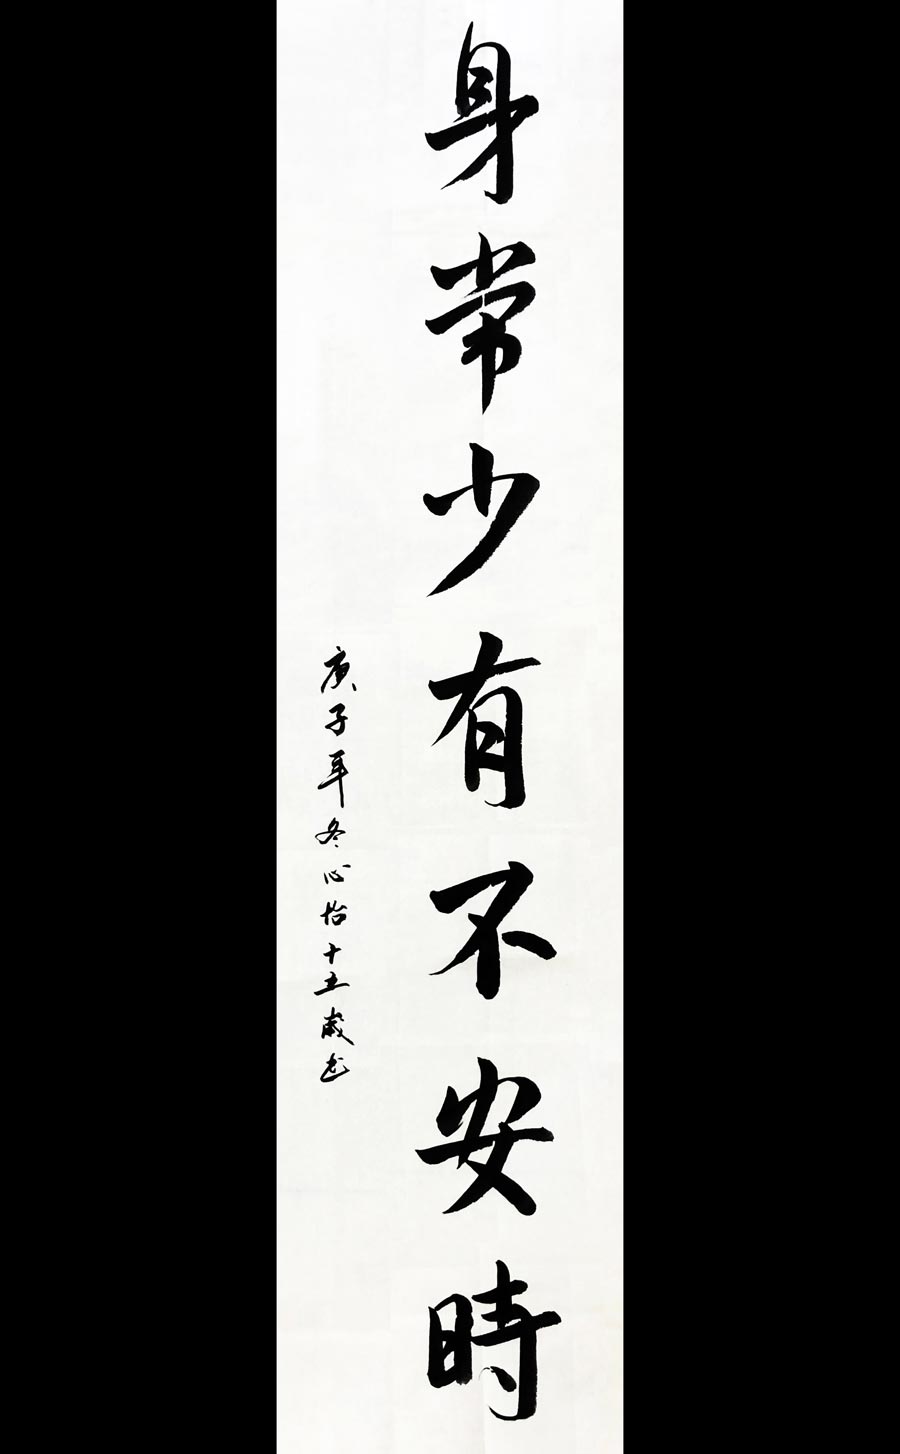 身常少有不安時
庚子年冬心怡十五歲書